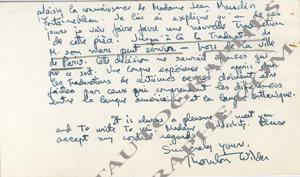 plaisir la connaissance de Madame Jean Marsden
Fontainebleau. Je lui ai expliqué qu'un de ces
jours je vais faire faire une nouvelle traduction
de cette pièce. Jusque à là la traduction de
M. son mari peut servir — hors de la ville
de Paris. Cette décision ne saurait offenser qui
que ce soit. Une longue expérience m'a appris que
les traductions de certaines oeuvres doivent être
faites par ceux qui comprennent les différences
entre la langue américaine et la langue britannique.
It is always a pleasure to meet you
and to write to you, Madame. Please
accept my cordial regards
Sincerely yours,
Thornton Wilder